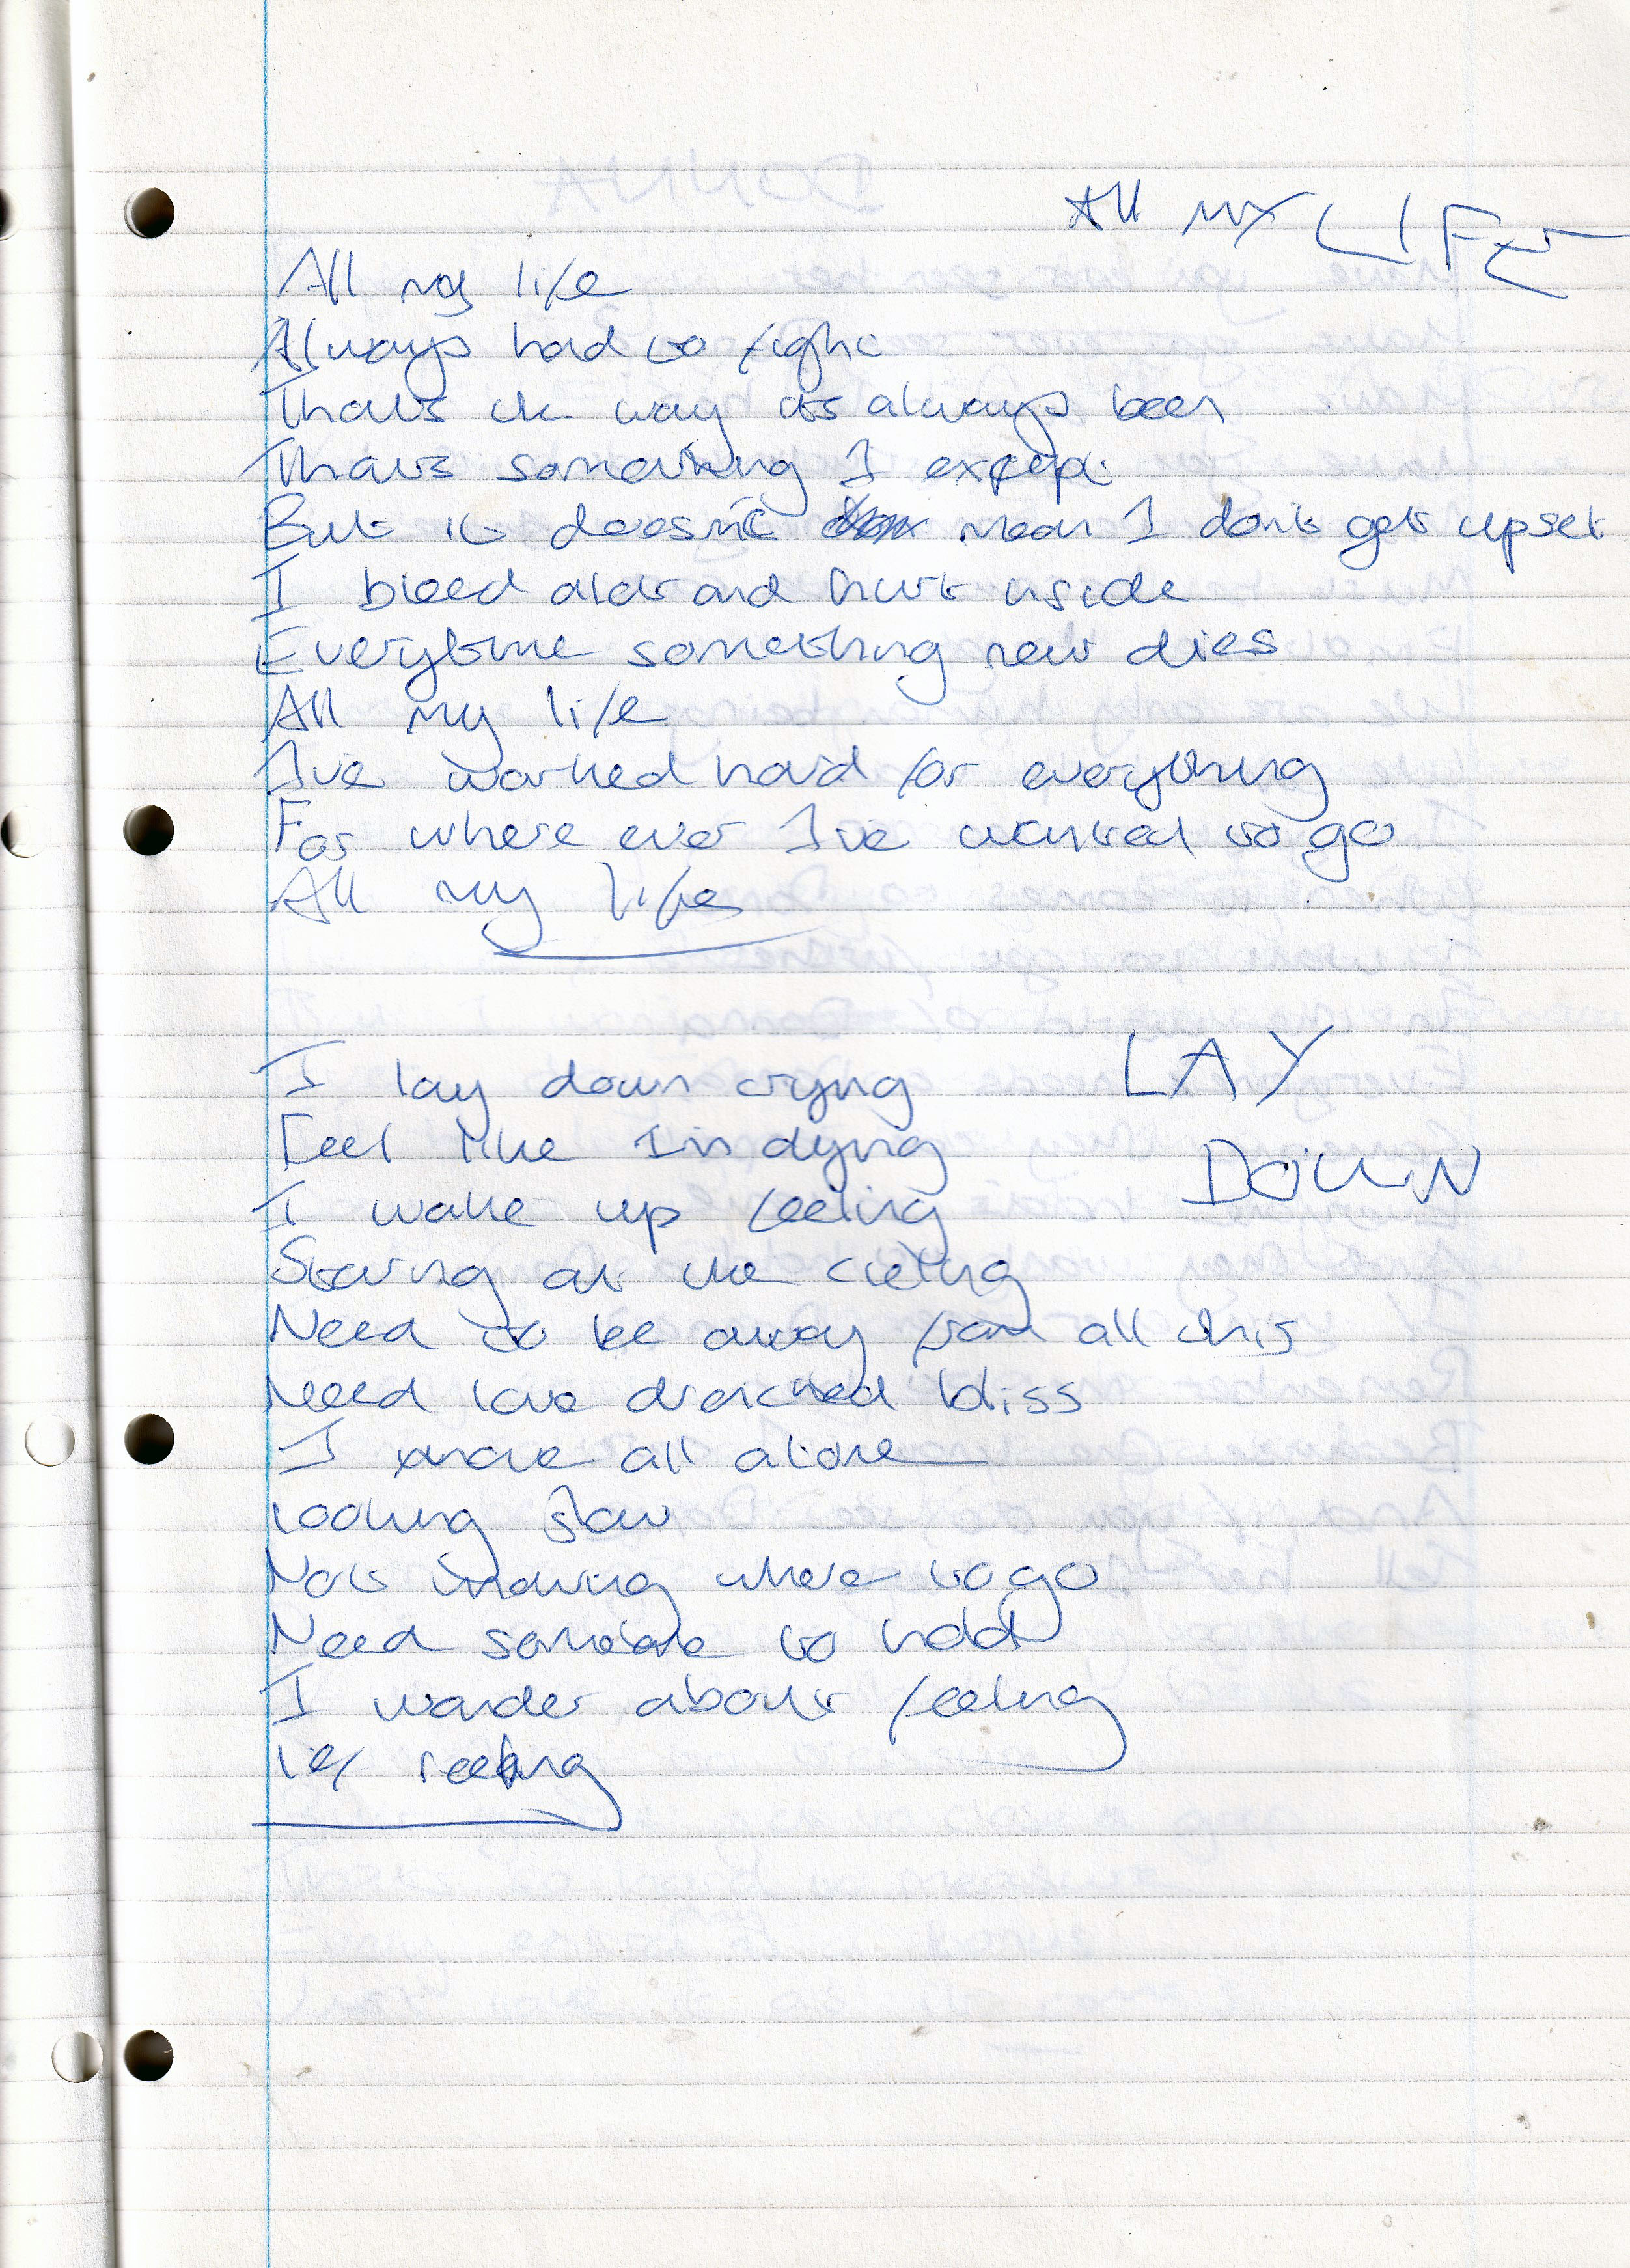 All my LIFE
All my life
Always had to fight
Thats the way its always been
Thats something I expept
But it doesnt mean I dont get upset
I bleed alot and hurt inside
Everytime something new dies
All my life
I've worked hard for everything
For where ever I've wanted to go
All my life
LAY
DOWN
I lay down crying
Feel like I'm dying
I wake up feeling
Staring at the cieling
Need to be away from all this
Need love drenched bliss
I all alone
Looking slow
Not knowing where to go
Need someone to hold
I wander about feeling
Left reeling